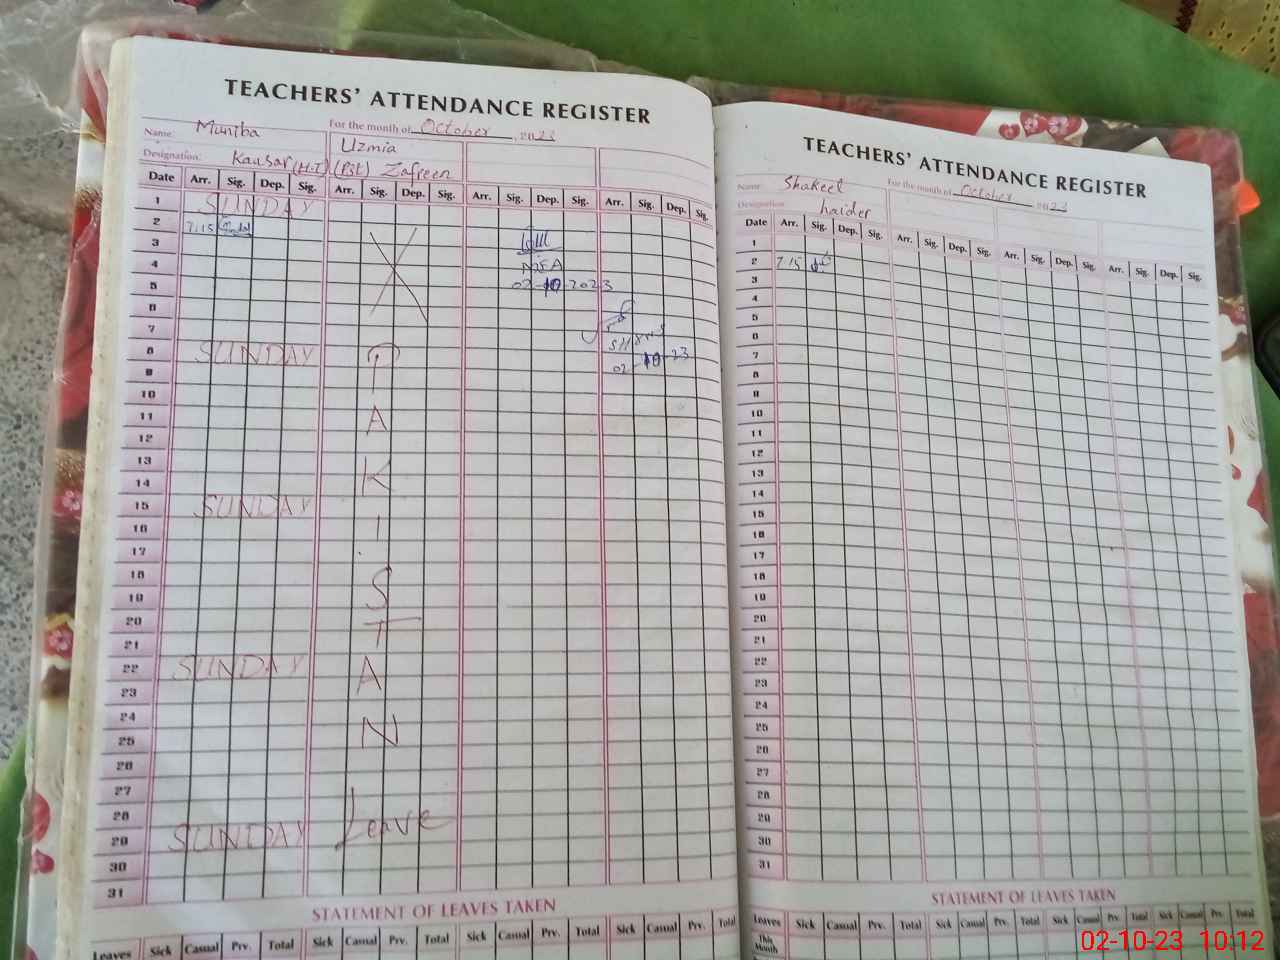 TEACHERS' ATTENDANCE REGISTER
For the month of October, 2023
Name: Muntha Uzmia
Designation: Kausar (H.T) (Pst) Zafreen
Date Arr. Sig. Dep. Sig. Arr. Sig. Dep. Sig. Arr. Sig. Dep. Sig. Arr. Sig. Dep. Sig.
1 SUNDAY
2 7:15
3
4 MEA
5 02-10-2023
6
7
8 SUNDAY P
9 02-10-23
10
11 A
12
13
14 K
15 SUNDAY
16 I
17
18
19 S
20
21 T
22 SUNDAY A
23
24
25 N
26
27
28
29 SUNDAY Leave
30
31
STATEMENT OF LEAVES TAKEN
Leaves Sick Casual Prv. Total Sick Casual Prv. Total Sick Casual Prv. Total Sick Casual Prv. Total
TEACHERS' ATTENDANCE REGISTER
Name: Shakeel For the month of October 2023
Designation: haider
Date Arr. Sig. Dep. Sig. Arr. Sig. Dep. Sig. Arr. Sig. Dep. Sig. Arr. Sig. Dep. Sig.
1
2 7:15
3
4
5
6
7
8
9
10
11
12
13
14
15
16
17
18
19
20
21
22
23
24
25
26
27
28
29
30
31
STATEMENT OF LEAVES TAKEN
Leaves Sick Casual Prv. Total Sick Casual Prv. Total Sick Casual Prv. Total Sick Casual Prv. Total
This Month
02-10-23 10:12